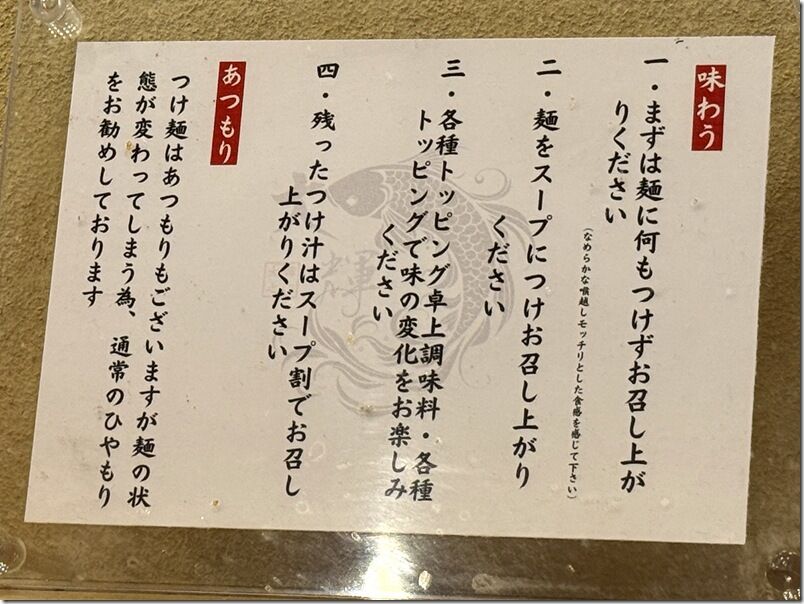 味わう
一・まずは麺に何もつけずお召し上が
りください
(なめらかな喉越しモッチリとした食感を感じて下さい)
二・麺をスープにつけお召し上がり
ください
三・各種トッピング卓上調味料・各種
トッピングで味の変化をお楽しみ
ください
四・残ったつけ汁はスープ割でお召し
上がりください
あつもり
つけ麺はあつもりもございますが麺の状
態が変わってしまう為、通常のひやもり
をお勧めしております
輝